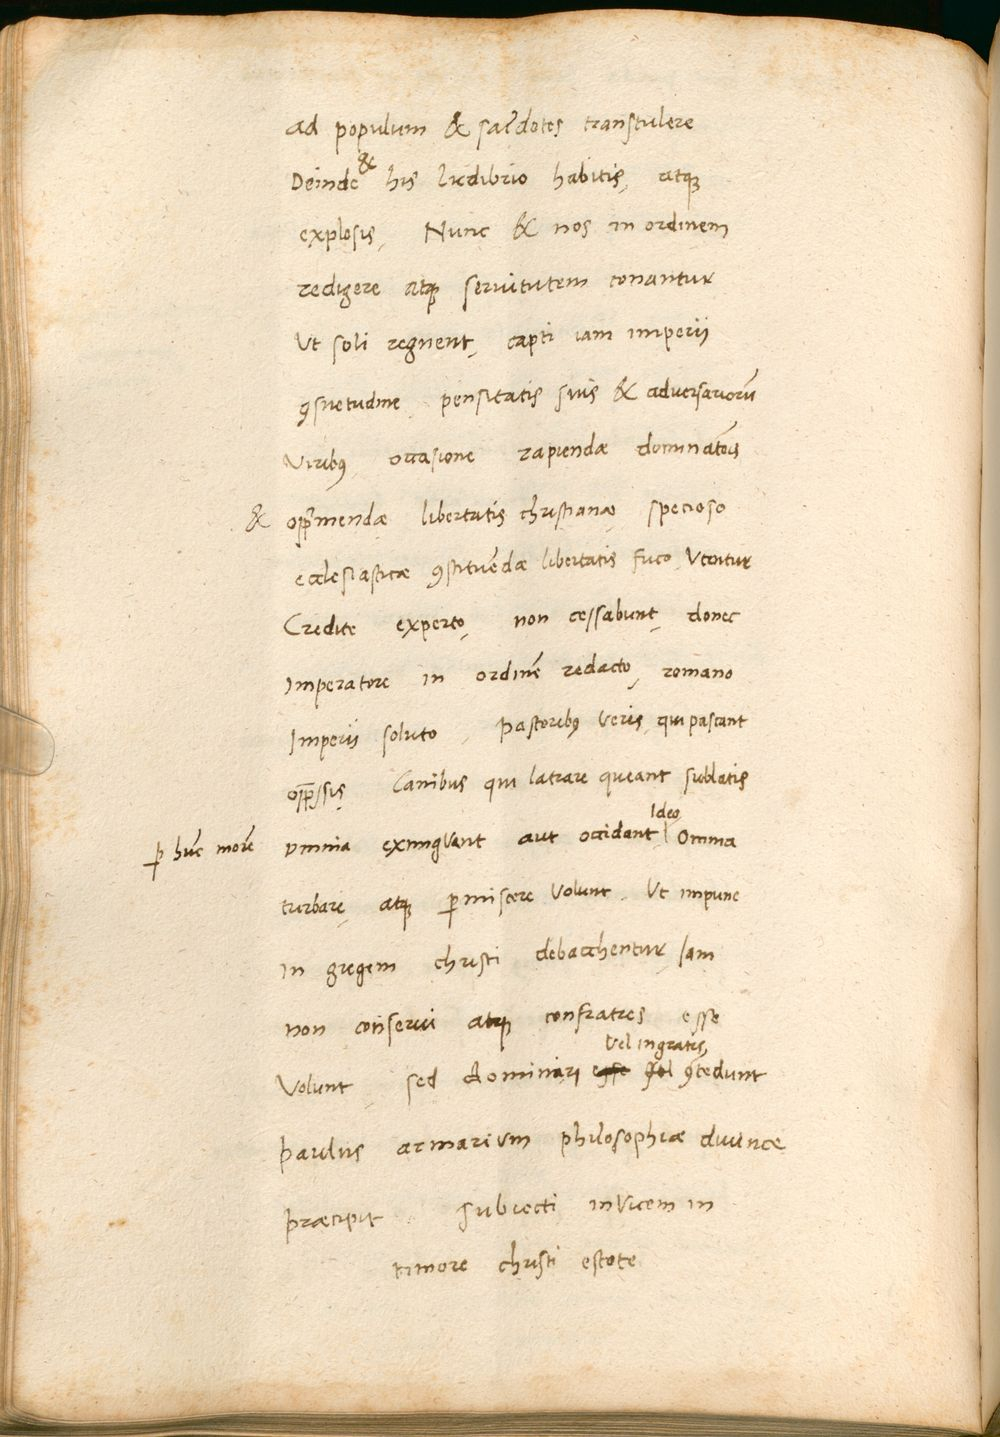 ad populum & sac̄dotes transtulere
Deinde & his ludibrio habitis, atq;
explosis, Nunc & nos in ordinem
redigere atq; servitutem conantur
Ut soli regnent, capti iam imperii
ꝯsuetudine pensitatis suis & adversariorū
Viribꝰ occasione rapiendæ dominatōis
& opp̄mendæ libertatis christianæ specioso
ecclesiasticæ ꝯstituēdæ libertatis fuco Utuntur
Credite experto, non cessabunt, donec
Imperatore in ordinē redacto, romano
Imperii soluto, Pastoribꝰ veris, qui pascant
opp̄ssis, Canibus qui latrare queant sublatis
ꝑ hūc morē omnia exungvant aut occidant Ideo Omnia
turbare, atq; ꝑmiscere Volunt. Ut impune
in gregem christi debacchentur Iam
non conservi atq; confratres esse
Vel ingratis,
Volunt sed dominari esse ꝯcedunt
Paulus armarium philosophiæ divinæ
Præcipit subiecti invicem in
timore christi estote